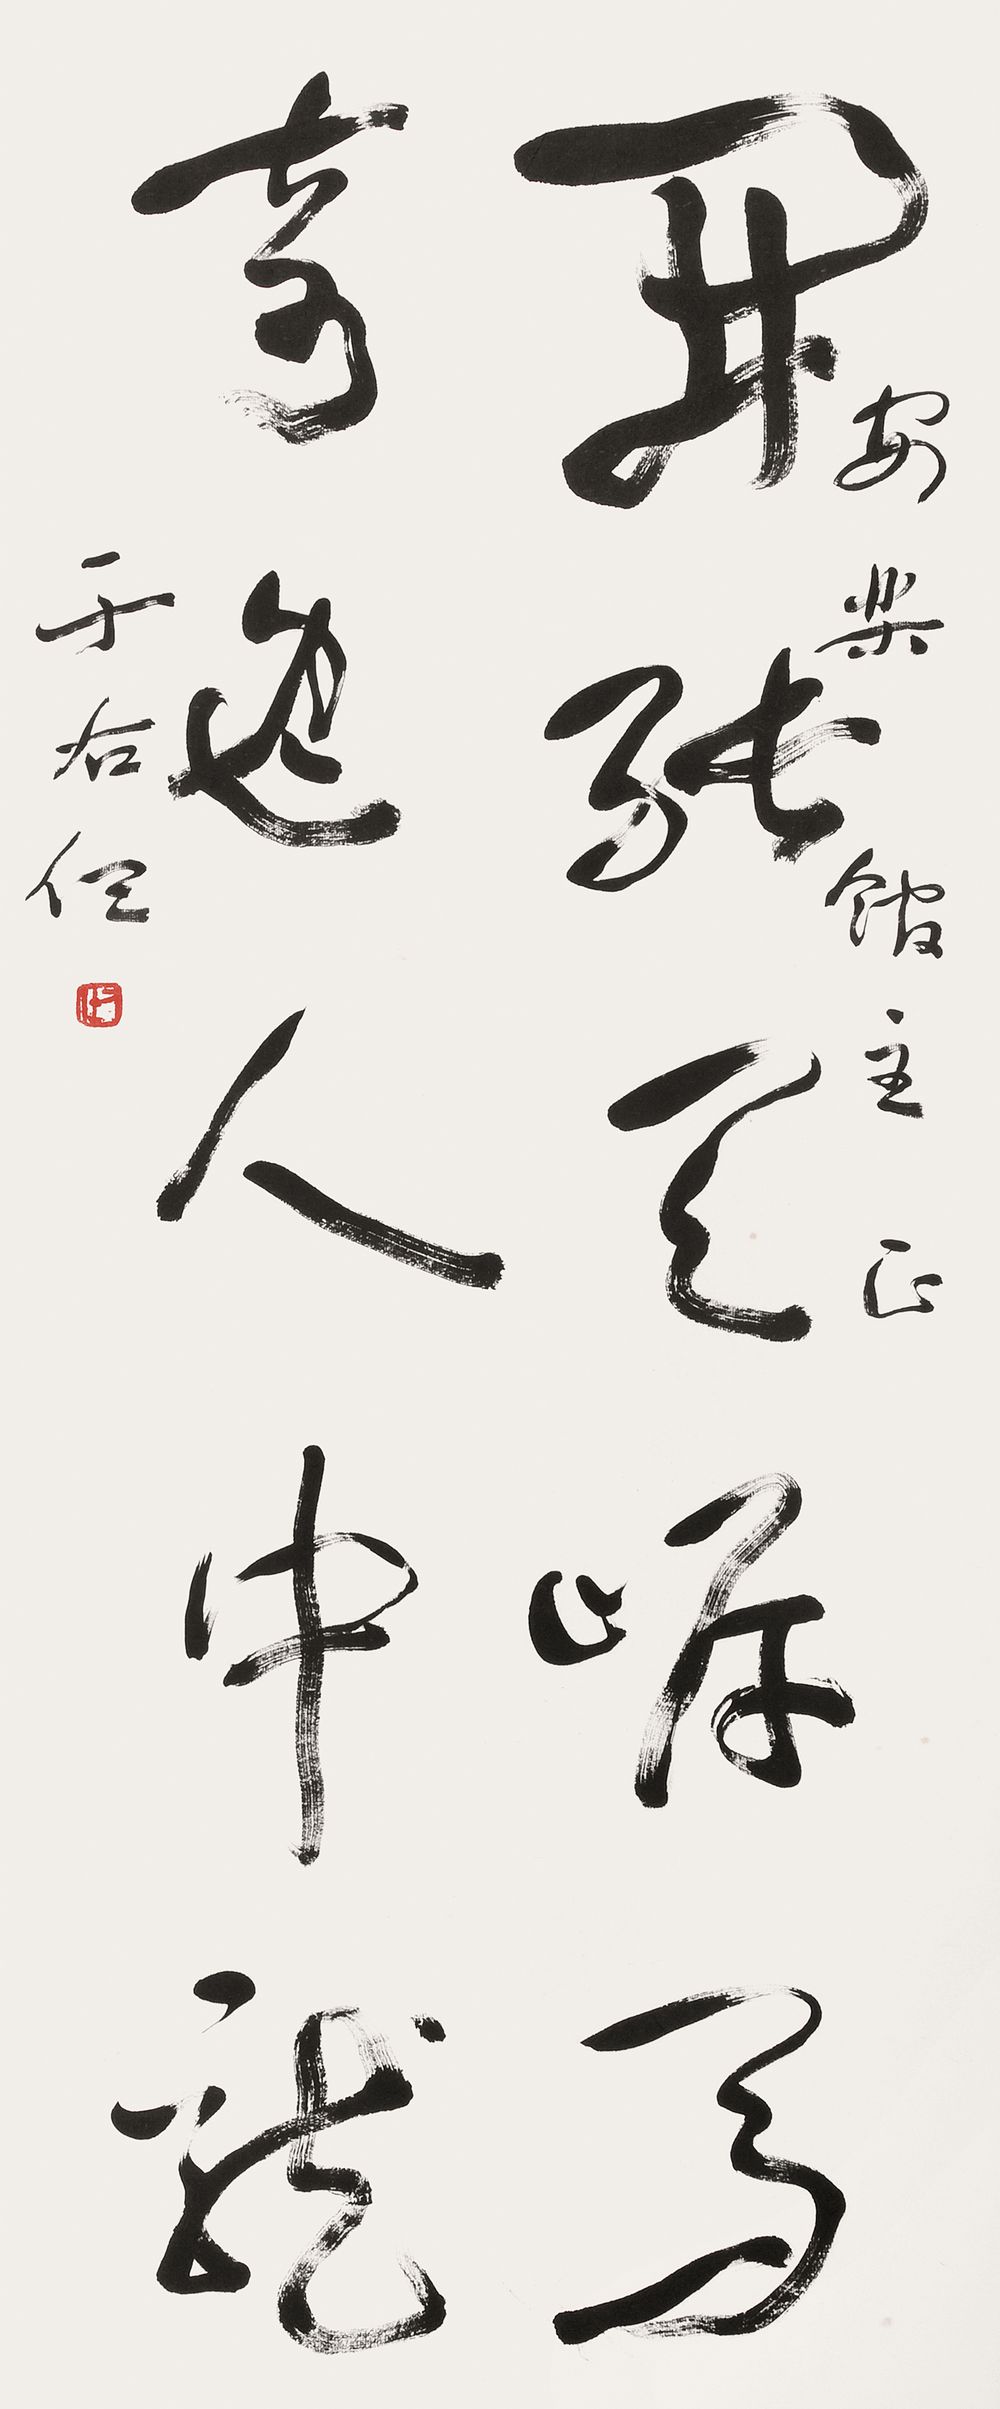 安樂館主正
開張天岸馬
奇逸人中龍
于右任